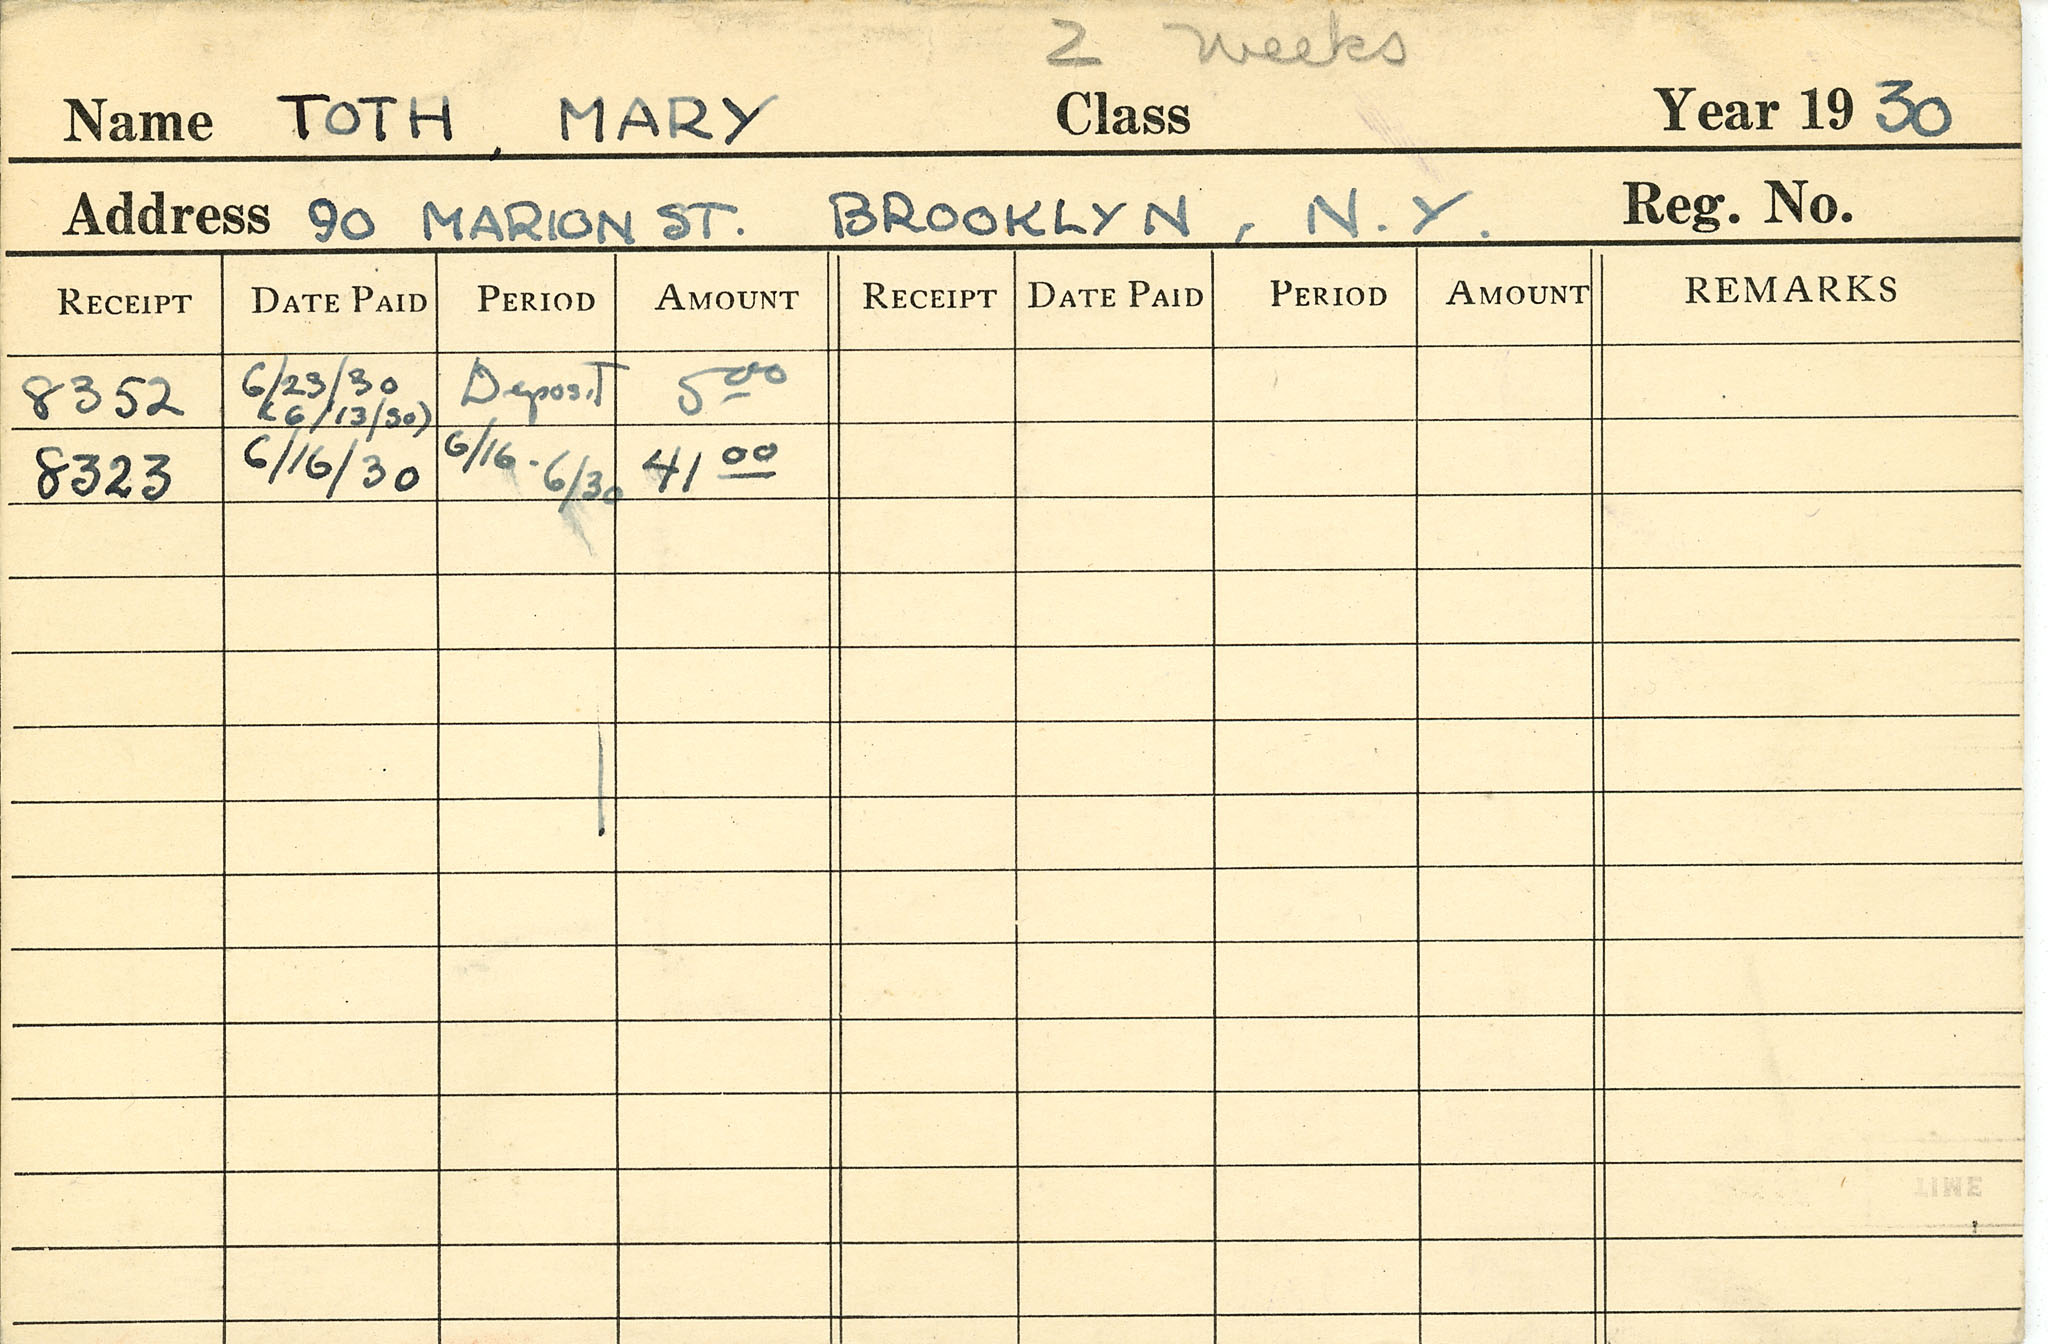 2 weeks
Name TOTH, MARY Class Year 19 30
Address 90 MARION ST. BROOKLYN, N.Y. Reg. No.
RECEIPT DATE PAID PERIOD AMOUNT RECEIPT DATE PAID PERIOD AMOUNT REMARKS
8352 6/23/30 Deposit 5 00
(6/13/30)
8323 6/16/30 6/16 - 6/30 41 00
TIME